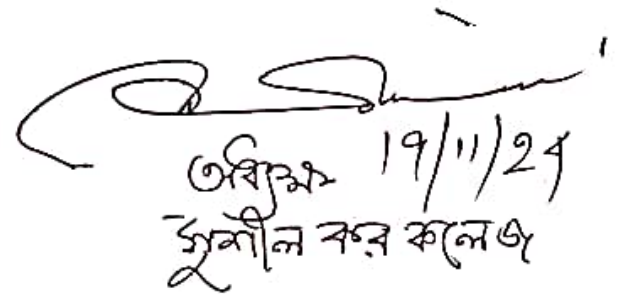 অধ্যক্ষ 19/11/24
সুশীল কর কলেজ